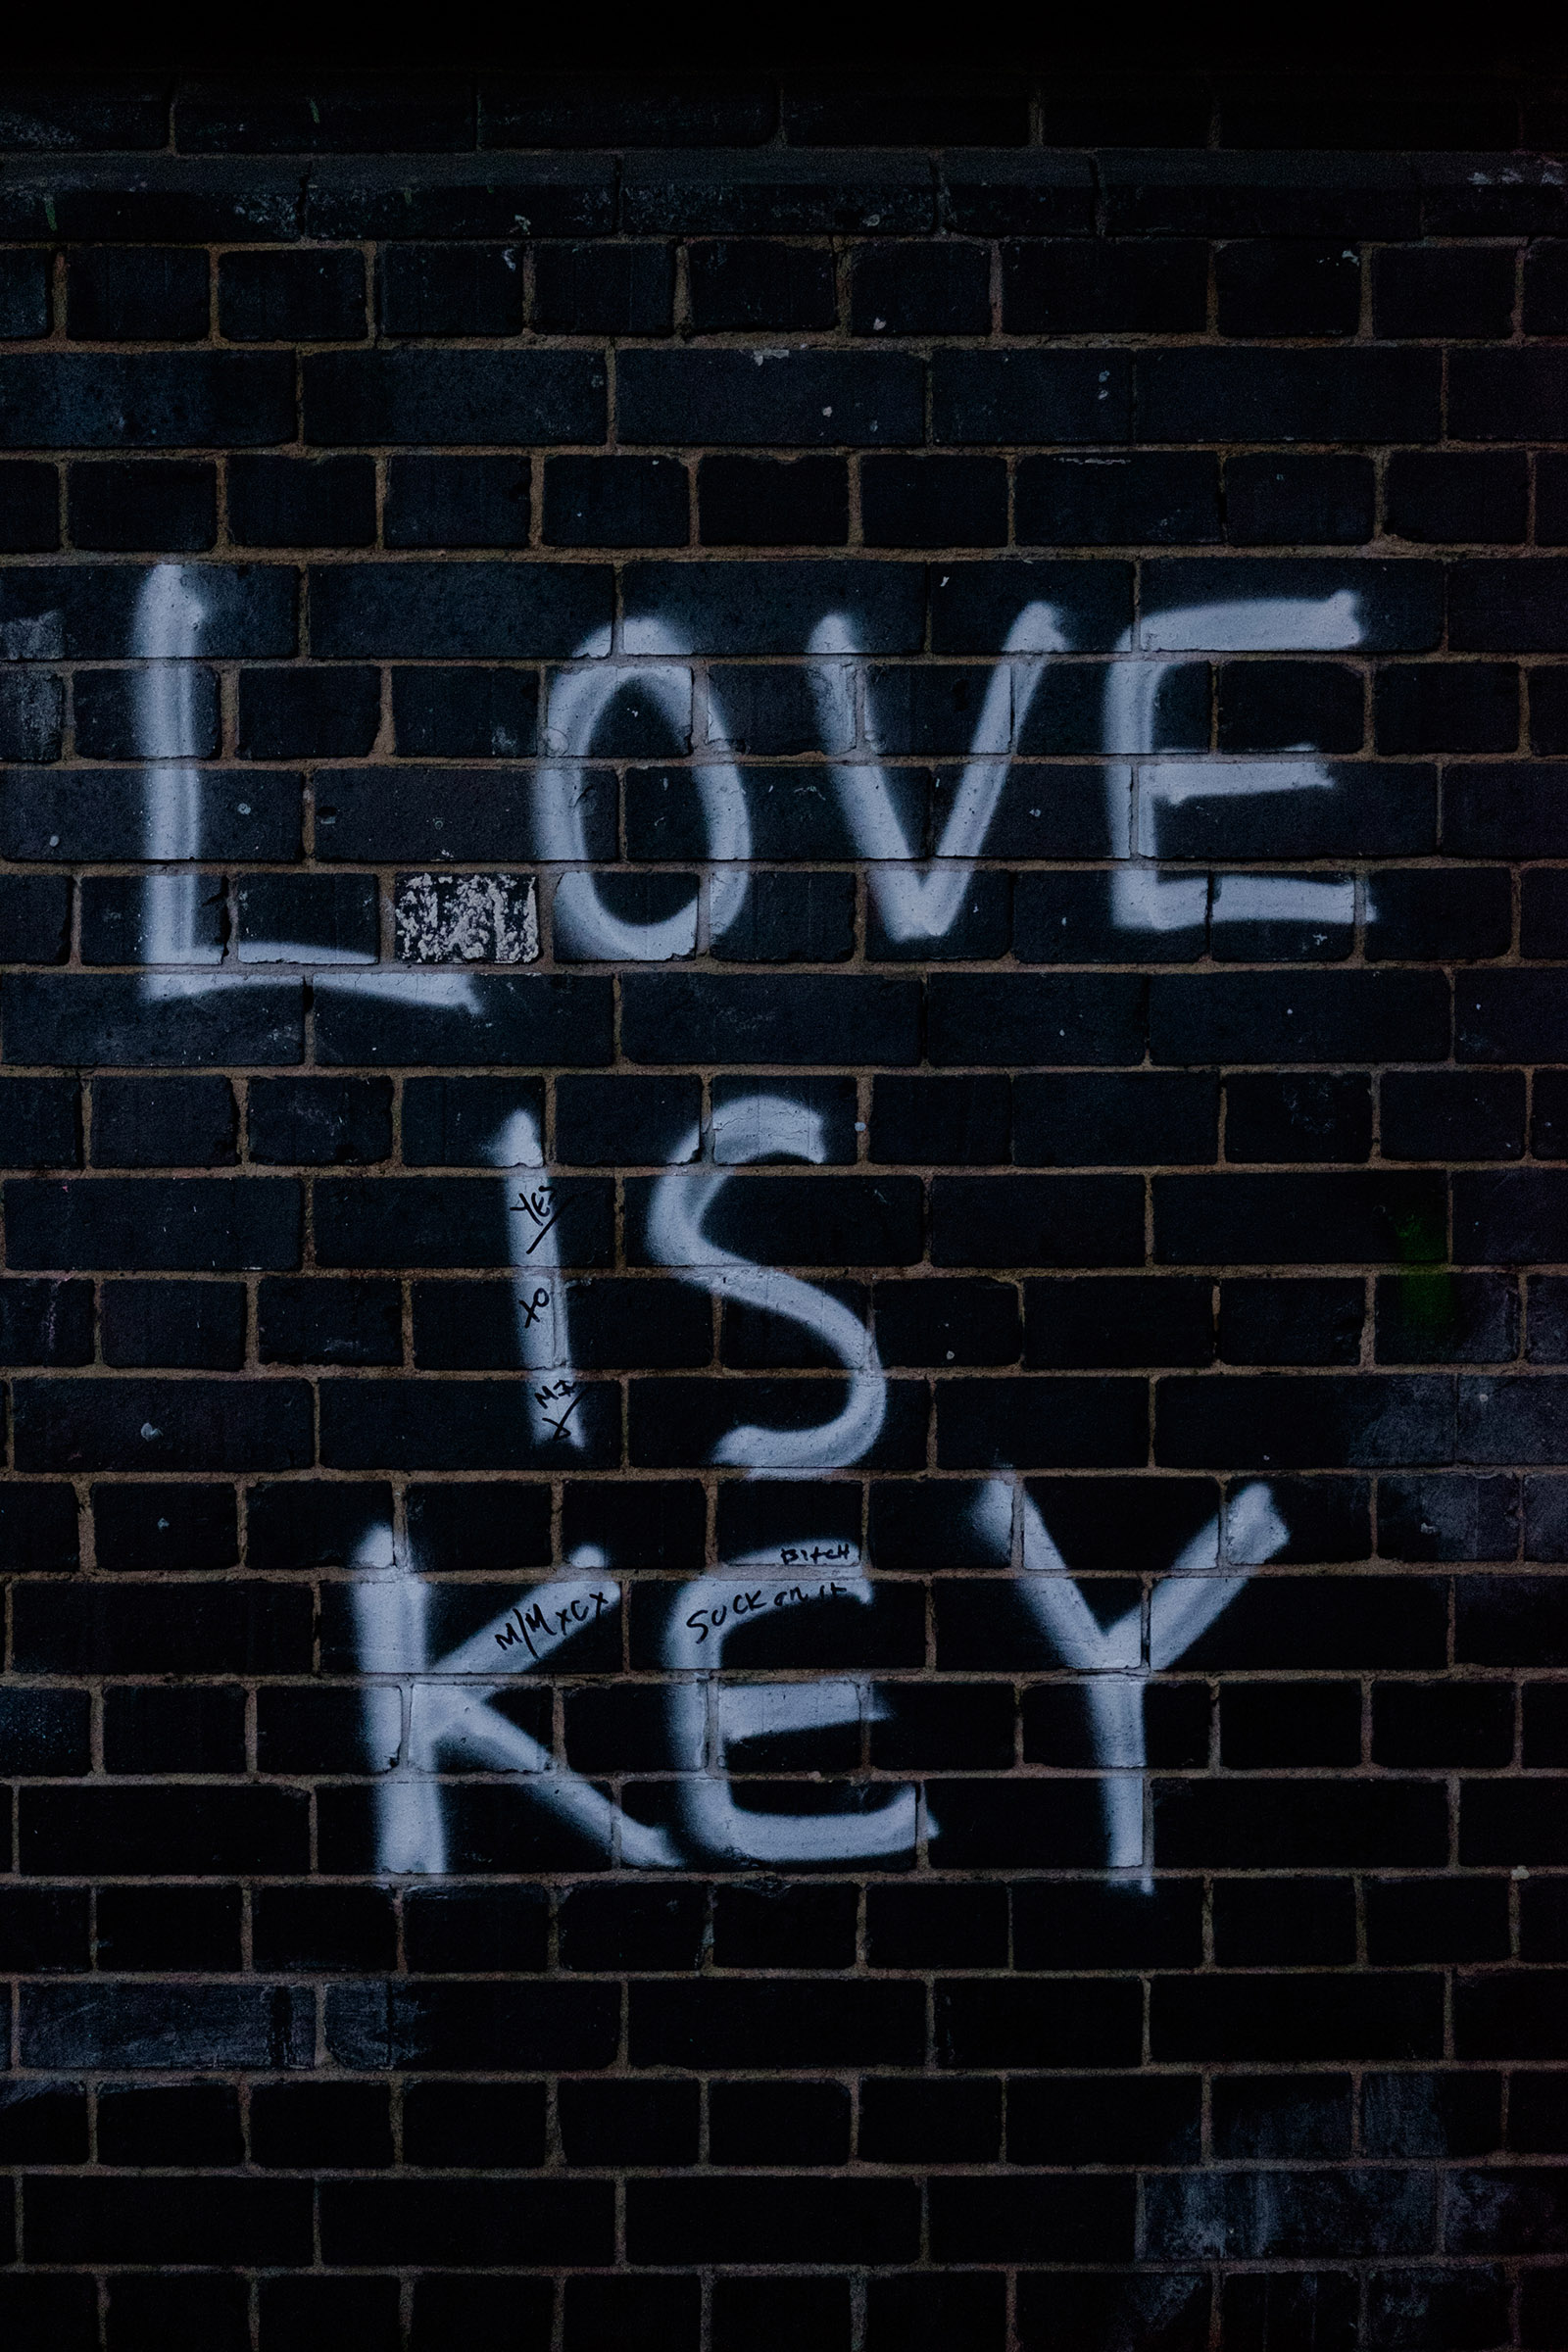 LOVE
IS
YES
XO
KEY
M/M XCX
BitcH
SUCK on it